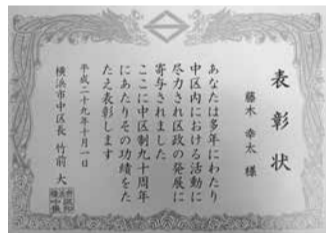 表彰状
藤木 幸太 様
あなたは多年にわたり
中区内における活動に
尽力され区政の発展に
寄与されました
ここに中区制九十周年
にあたりその功績をた
たえ表彰します
平成二十九年十月一日
横浜市中区長 竹前 大